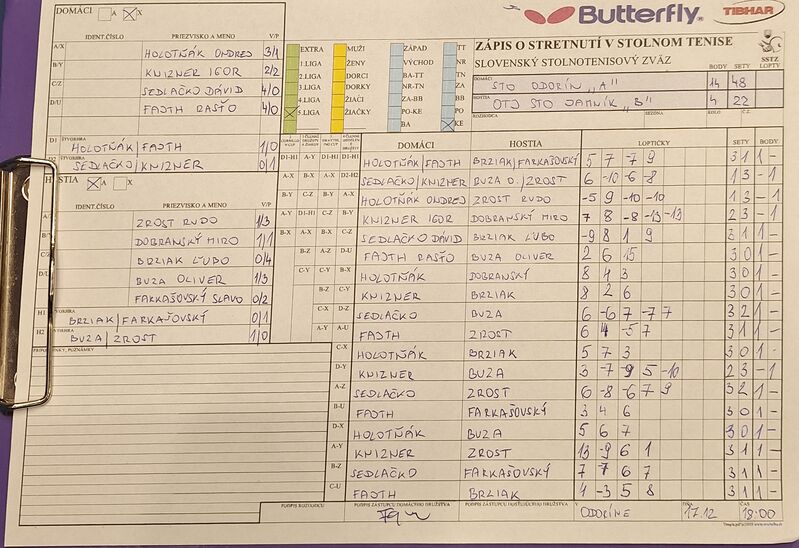 DOMÁCI A X
Butterfly
TIBHAR
IDENT.ČÍSLO PRIEZVISKO A MENO V/P
A/X HOLOTŇÁK ONDREJ 3/1
B/Y KNIZNER IGOR 2/2
C/Z SEDLAČKO DÁVID 4/0
D/U FAJTH RASŤO 4/0
D1 ŠTVORHRA
HOLOTŇÁK/FAJTH 1/0
D2
SEDLAČKO/KNIZNER 0/1
EXTRA
1.LIGA
2.LIGA
3.LIGA
4.LIGA
5.LIGA
MUŽI
ŽENY
DORCI
DORKY
ŽIACI
ŽIAČKY
ZÁPAD
VÝCHOD
BA-TT
NR-TN
ZA-BB
PO-KE
BA
TT
NR
TN
ZA
BB
PO
KE
ZÁPIS O STRETNUTÍ V STOLNOM TENISE
SLOVENSKÝ STOLNOTENISOVÝ ZVÄZ
SSTZ
BODY SETY LOPTY
DOMÁCI STO ODORÍN „A" 14 48
HOSTIA OTJ STO JAMNÍK „B" 4 22
ROZHODCA KOLO SEZÓNA Č.
HOSTIA A X
IDENT.ČÍSLO PRIEZVISKO A MENO V/P
A/X ZROST RUDO 1/3
B/Y DOBRANSKÝ MIRO 1/1
C/Z BRZIAK ĽUBO 0/4
D/U BUZA OLIVER 1/3
FARKAŠOVSKÝ SLAVO 0/2
H1 ŠTVORHRA
BRZIAK/FARKAŠOVSKÝ 0/1
H2 ŠTVORHRA
BUZA/ZROST 1/0
PRIPOMIENKY, POZNÁMKY
DOMÁCI HOSTIA LOPTIČKY SETY BODY
D1-H1 HOLOTŇÁK/FAJTH BRZIAK/FARKAŠOVSKÝ 5 7 7 9 3 1 1 -
D2-H2 SEDLAČKO/KNIZNER BUZA O./ZROST 6 -10 -6 -8 1 3 - 1
A-X HOLOTŇÁK ONDREJ ZROST RUDO -5 9 -10 -10 1 3 - 1
B-Y KNIZNER IGOR DOBRANSKÝ MIRO 7 8 -8 -13 -13 2 3 - 1
C-Z SEDLAČKO DÁVID BRZIAK ĽUBO -9 8 1 9 3 1 1 -
D-U FAJTH RASŤO BUZA OLIVER 2 6 15 3 0 1 -
HOLOTŇÁK DOBRANSKÝ 8 4 3 3 0 1 -
B-Z KNIZNER BRZIAK 8 2 6 3 0 1 -
C-X D-Z SEDLAČKO BUZA 6 -6 7 -7 7 3 2 1 -
A-Y A-U FAJTH ZROST 6 4 -5 7 3 1 1 -
C-X HOLOTŇÁK BRZIAK 5 7 3 3 0 1 -
D-Y KNIZNER BUZA 3 -7 -9 5 -10 2 3 - 1
A-Z SEDLAČKO ZROST 6 -8 -6 7 9 3 2 1 -
B-U FAJTH FARKAŠOVSKÝ 3 4 6 3 0 1 -
D-X HOLOTŇÁK BUZA 5 6 7 3 0 1 -
A-Y KNIZNER ZROST 13 -9 6 1 3 1 1 -
B-Z SEDLAČKO FARKAŠOVSKÝ 7 7 6 7 3 1 1 -
C-U FAJTH BRZIAK 4 -3 5 8 3 1 1 -
PODPIS ROZHODCU PODPIS ZÁSTUPCU DOMÁCEHO DRUŽSTVA PODPIS ZÁSTUPCU HOSŤUJÚCEHO DRUŽSTVA V ODORÍNE DŇA 17.12 ČAS 18:00